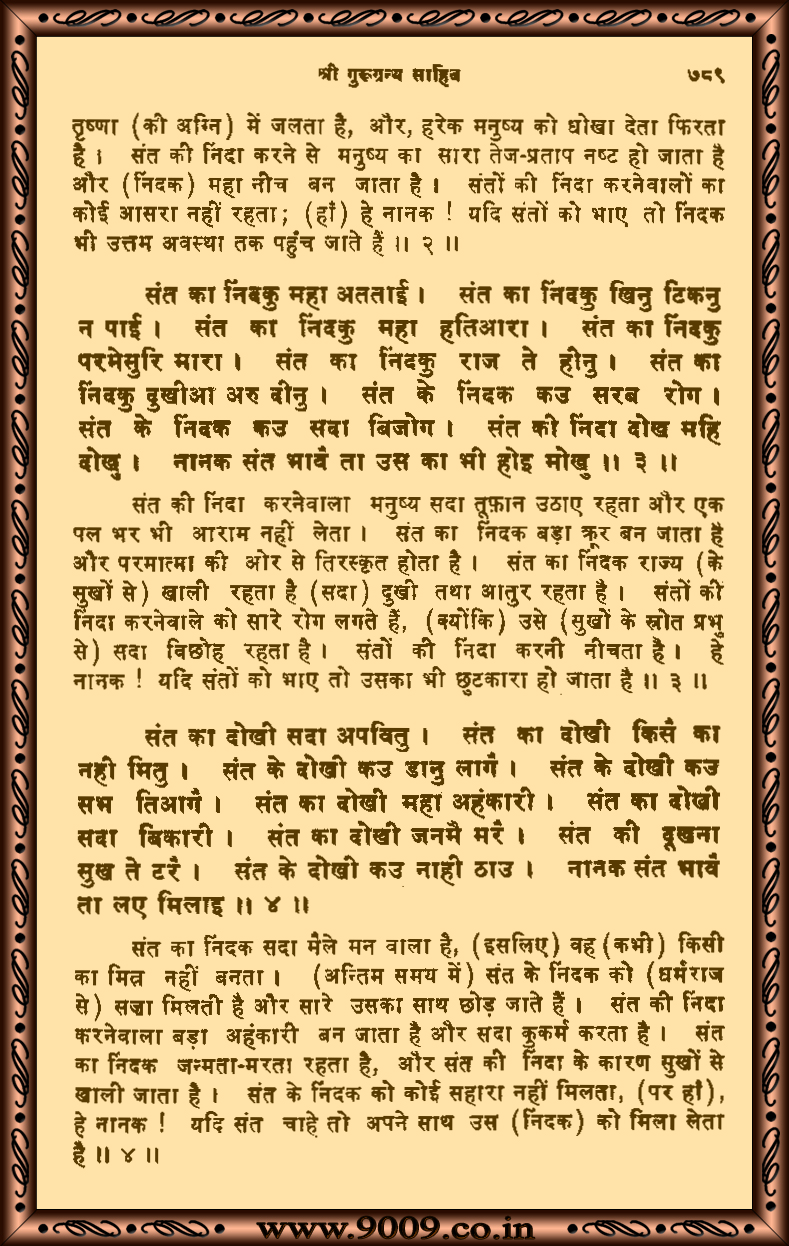 श्री गुरूग्रन्थ साहिब ७८९
तृष्णा (की अग्नि) में जलता है, और, हरेक मनुष्य को धोखा देता फिरता
है । संत की निंदा करने से मनुष्य का सारा तेज-प्रताप नष्ट हो जाता है
और (निंदक) महा नीच बन जाता है । संतों की निंदा करनेवालों का
कोई आसरा नहीं रहता; (हाँ) हे नानक ! यदि संतों को भाए तो निंदक
भी उत्तम अवस्था तक पहुंच जाते हैं ।। २ ।।
संत का निंदकु महा अतताई । संत का निंदकु खिनु टिकनु
न पाई । संत का निंदकु महा हतिआरा । संत का निंदकु
परमेसुरि मारा । संत का निंदकु राज ते हीनु । संत का
निंदकु दुखीआ अरु दीनु । संत के निंदक कउ सरब रोग ।
संत के निंदक कउ सदा बिजोग । संत की निंदा दोख महि
दोखु । नानक संत भावै ता उस का भी होइ मोखु ।। ३ ।।
संत की निंदा करनेवाला मनुष्य सदा तूफ़ान उठाए रहता और एक
पल भर भी आराम नहीं लेता । संत का निंदक बड़ा क्रूर बन जाता है
और परमात्मा की ओर से तिरस्कृत होता है । संत का निंदक राज्य (के
सुखों से) खाली रहता है (सदा) दुखी तथा आतुर रहता है । संतों की
निंदा करनेवाले को सारे रोग लगते हैं, (क्योंकि) उसे (सुखों के स्रोत प्रभु
से) सदा विछोह रहता है । संतों की निंदा करनी नीचता है । हे
नानक ! यदि संतों को भाए तो उसका भी छुटकारा हो जाता है ।। ३ ।।
संत का दोखी सदा अपवितु । संत का दोखी किसै का
नही मितु । संत के दोखी कउ डानु लागै । संत के दोखी कउ
सभ तिआगै । संत का दोखी महा अहंकारी । संत का दोखी
सदा बिकारी । संत का दोखी जनमै मरै । संत की दूखना
सुख ते टरै । संत के दोखी कउ नाही ठाउ । नानक संत भावै
ता लए मिलाइ ।। ४ ।।
संत का निंदक सदा मैले मन वाला है, (इसलिए) वह (कभी) किसी
का मित्र नहीं बनता । (अन्तिम समय में) संत के निंदक को (धर्मराज
से) सज़ा मिलती है और सारे उसका साथ छोड़ जाते हैं । संत की निंदा
करनेवाला बड़ा अहंकारी बन जाता है और सदा कुकर्म करता है । संत
का निंदक जन्मता-मरता रहता है, और संत की निंदा के कारण सुखों से
खाली जाता है । संत के निंदक को कोई सहारा नहीं मिलता, (पर हाँ),
हे नानक ! यदि संत चाहे तो अपने साथ उस (निंदक) को मिला लेता
है ।। ४ ।।
www.9009.co.in